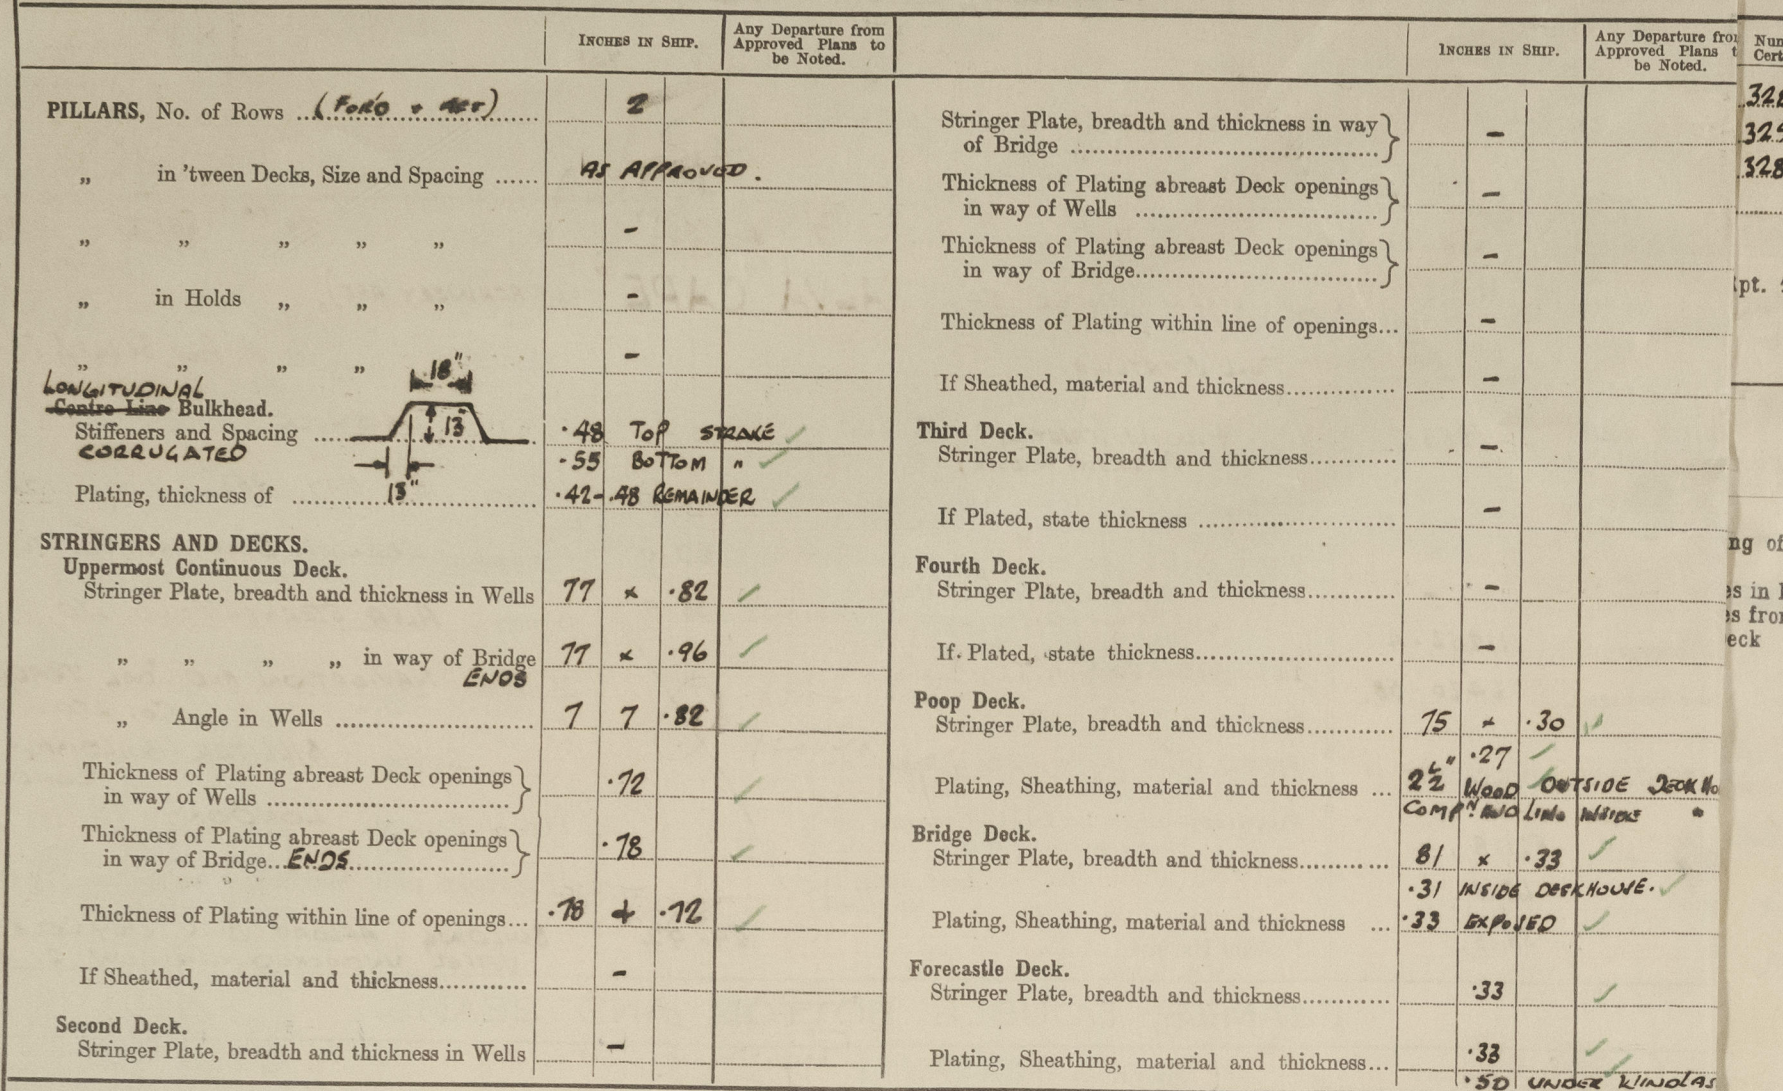 INCHES IN SHIP.
Any Departure from
Approved Plans to
be Noted.
PILLARS, No. of Rows ...(FOR'D + AFT)... 2
„ in 'tween Decks, Size and Spacing ...... AS APPROVED.
„ „ „ „ „ -
„ in Holds „ „ „ -
„ „ „ „ -
18"
LONGITUDINAL
Centre Line Bulkhead.
Stiffeners and Spacing ...... 13" .48 TOP STRAKE ✓
CORRUGATED .55 BOTTOM " ✓
Plating, thickness of ...... 13" .42-.48 REMAINDER ✓
STRINGERS AND DECKS.
Uppermost Continuous Deck.
Stringer Plate, breadth and thickness in Wells 77 x .82 ✓
„ „ „ „ in way of Bridge 77 x .96 ✓
ENDS
„ Angle in Wells ...... 7 7 .82 ✓
Thickness of Plating abreast Deck openings
in way of Wells ...... .72 ✓
Thickness of Plating abreast Deck openings
in way of Bridge...ENDS ...... .78 ✓
Thickness of Plating within line of openings... .78 + .72 ✓
If Sheathed, material and thickness...... -
Second Deck.
Stringer Plate, breadth and thickness in Wells -
INCHES IN SHIP.
Any Departure from
Approved Plans t
be Noted.
Stringer Plate, breadth and thickness in way
of Bridge ...... -
Thickness of Plating abreast Deck openings
in way of Wells ...... -
Thickness of Plating abreast Deck openings
in way of Bridge...... -
Thickness of Plating within line of openings... -
If Sheathed, material and thickness...... -
Third Deck.
Stringer Plate, breadth and thickness...... -
If Plated, state thickness ...... -
Fourth Deck.
Stringer Plate, breadth and thickness...... -
If Plated, state thickness...... -
Poop Deck.
Stringer Plate, breadth and thickness...... 75 x .30 ✓
.27 ✓
Plating, Sheathing, material and thickness ... 2½" WOOD OUTSIDE DECK HO
COMPN AND LINO INSIDE "
Bridge Deck.
Stringer Plate, breadth and thickness...... 81 x .33 ✓
.31 INSIDE DECKHOUSE. ✓
Plating, Sheathing, material and thickness ... .33 EXPOSED ✓
Forecastle Deck.
Stringer Plate, breadth and thickness...... .33 ✓
Plating, Sheathing, material and thickness... .33 ✓
.50 UNDER WINDLAS
Num
Cert
328
325
328
pt.
ng of
es in
es from
eck